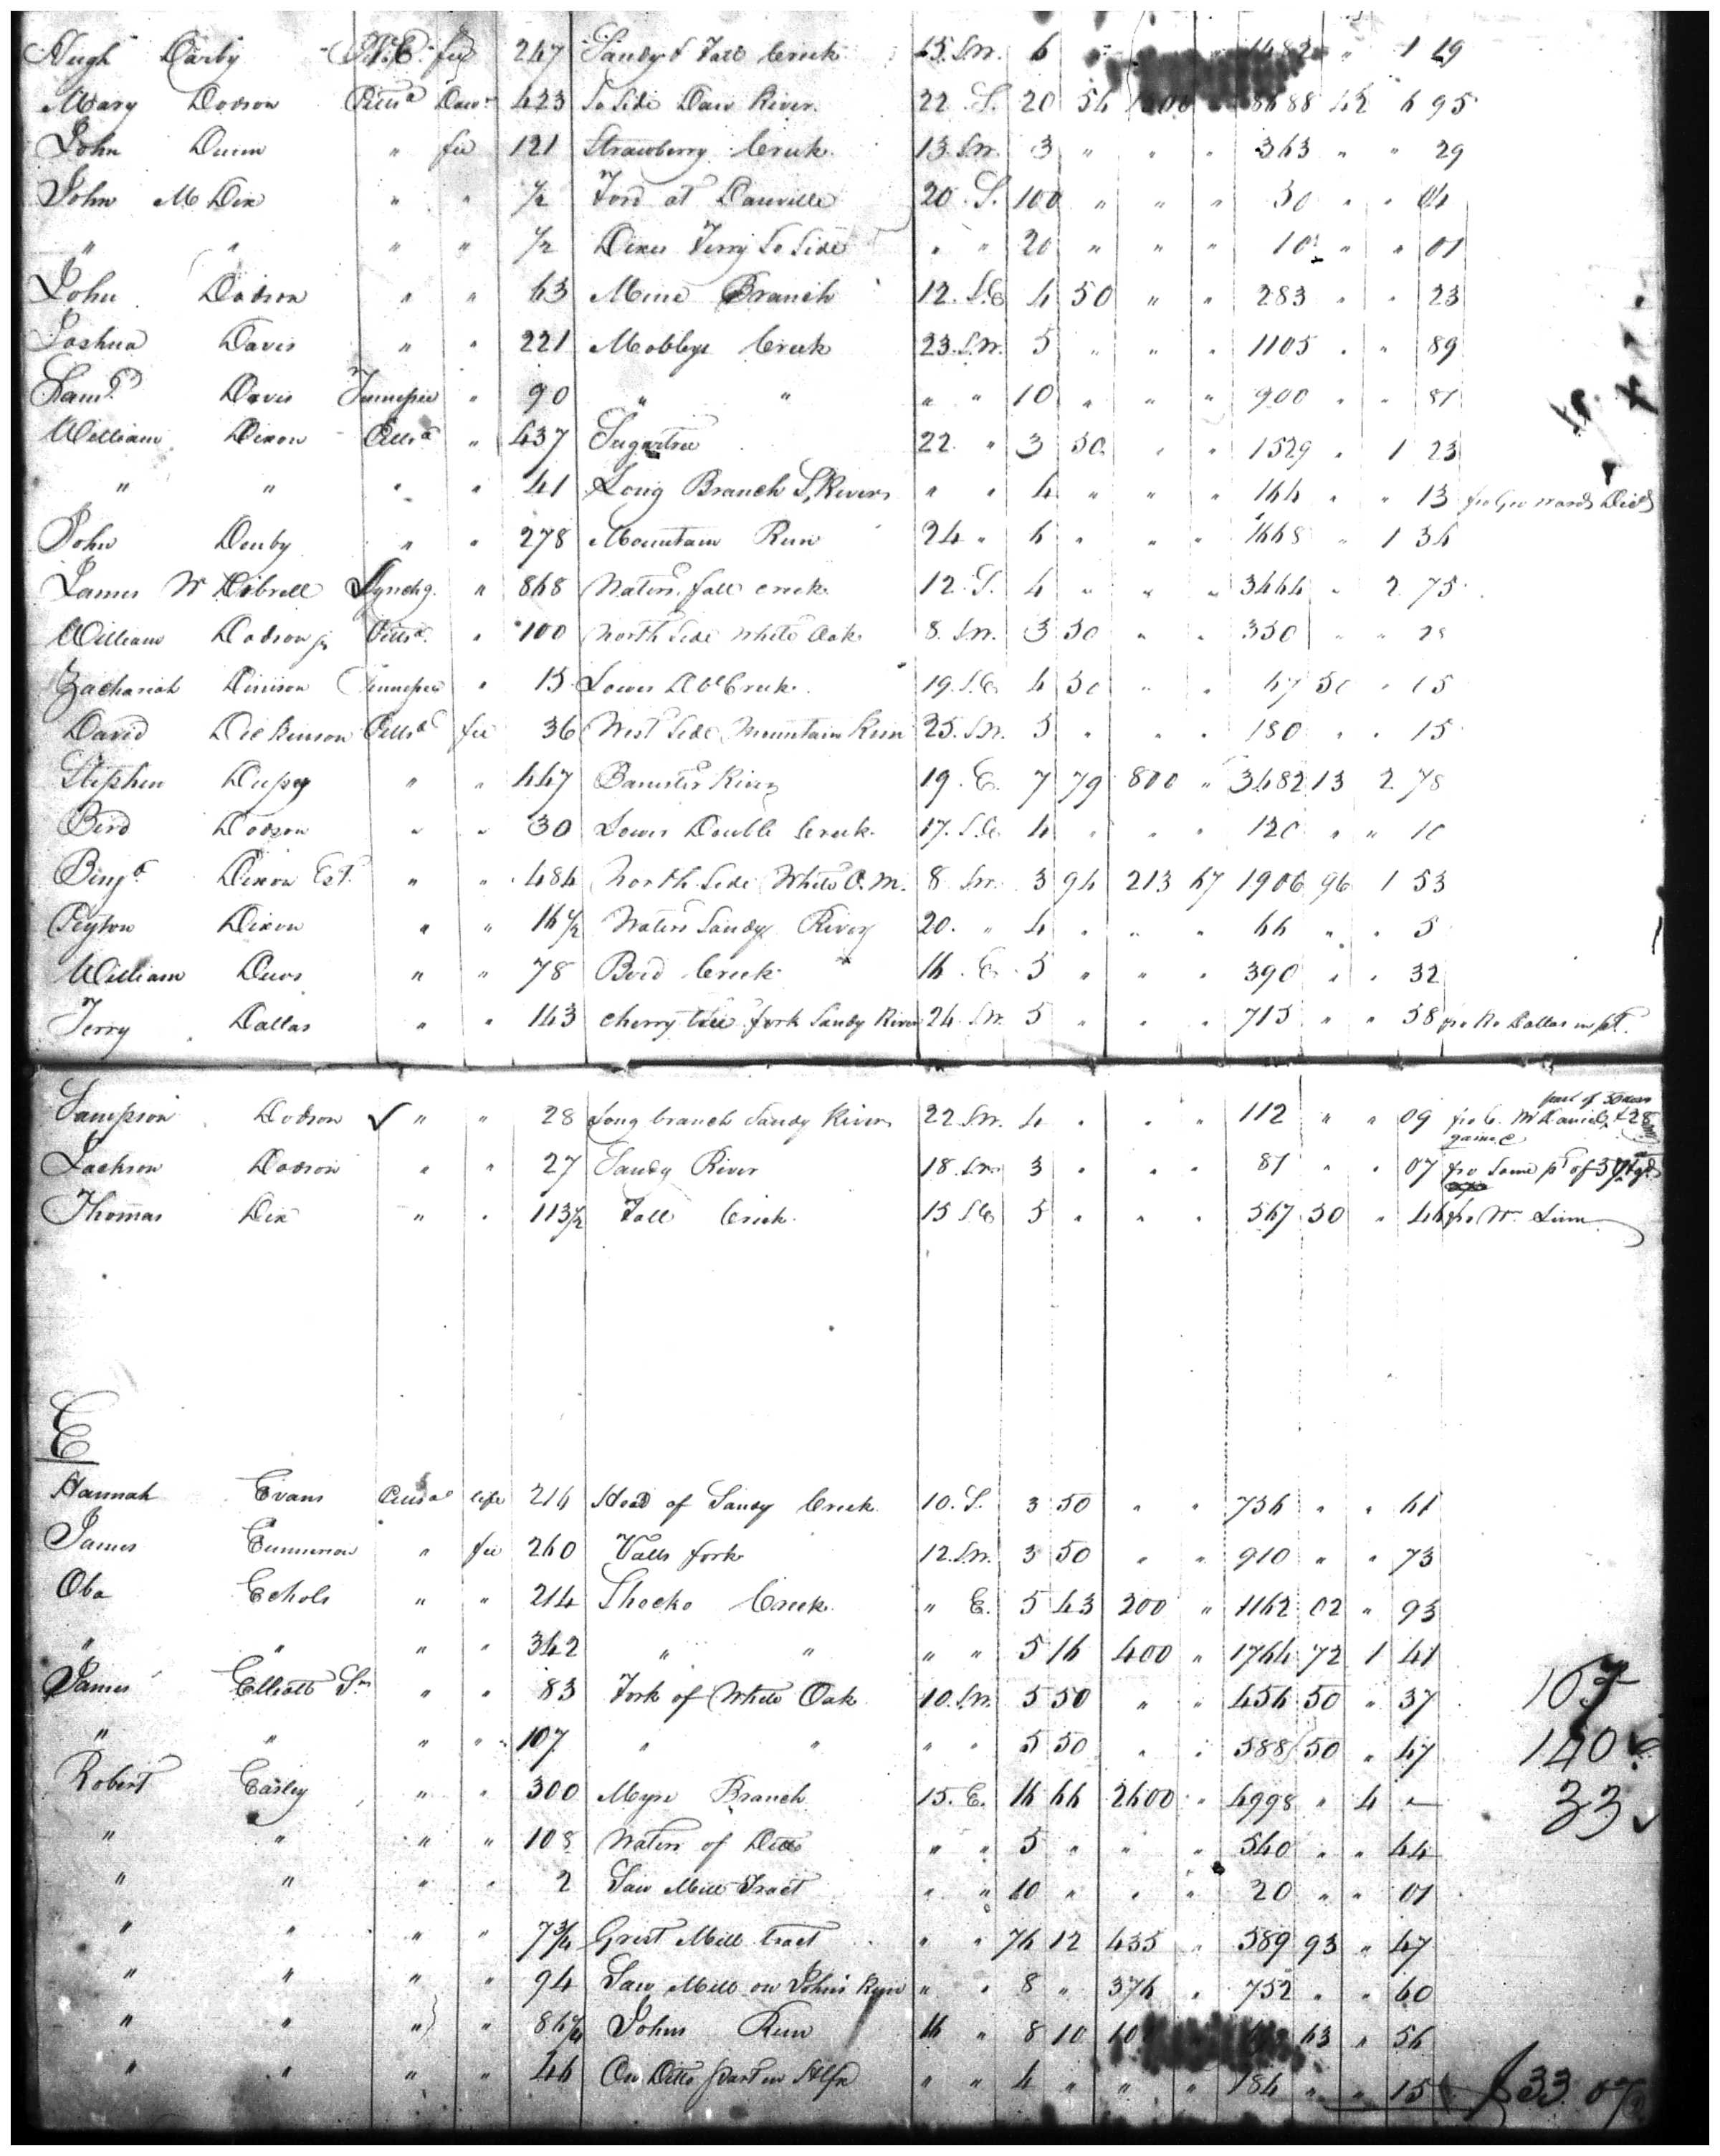 Hugh Darby N.C. fee 247 Sandy & Fall Creek 15. S.W. 6 " 1482 " 1 19
Mary Dodson Pittsa Dowr 423 So Side Dan River 22 S. 20 54 8688 42 6 95
John Dunn " fee 121 Strawberry Creek 13 S.W. 3 " " " 363 " " 29
John M Dix " " 1/2 Ford at Danville 20 S. 100 " " " 50 " " 04
" " " " 1/2 Dixes Ferry So Side " " 20 " " " 10 " " 01
John Dodson " " 63 Mine Branch 12. S.E 4 50 " " 283 " " 23
Joshua Davis " " 221 Mobleys Creek 23. S.W. 5 " " " 1105 " " 89
Saml Davis Tennessee " 90 " " " " 10 " " " 900 " " 81
William Dixon Pittsa " 437 Sugartree 22 " 3 50 " " 1529 " 1 23
" " " " 41 Long Branch S. River " " 4 " " " 164 " " 13
John Denby " " 278 Mountain Run 24 " 6 " " " 1668 " 1 34
James W Dibrell Lynchg. " 868 Waters fall creek 12. S. 4 " " " 3464 " 2 75
William Dodson jr Pittsa " 100 North Side White Oak 8. S.W. 3 50 " " 350 " " 28
Zachariah Dinison Tennessee " 15 Lower D. Creek 19. S.E. 4 50 " " 67 50 " 05
David Dickinson Pittsa fee 36 West Side Mountain Run 25. S.W. 5 " " " 180 " " 15
Stephen Dupey " " 447 Banister River 19. E. 7 79 800 " 3482 13 2 78
Bird Dodson " " 30 Lower Double Creek 17. S.E. 4 " " " 120 " " 10
Benja Dixon Est. " " 484 North Side White O. M. 8 S.W. 3 94 213 67 1906 96 1 53
Peyton Dixon " " 16 1/2 Waters Sandy River 20. " 4 " " " 66 " " 5
William Dews " " 78 Bird Creek 16. E. 5 " " " 390 " " 32
Terry Dallas " " 143 Cherry tree fork Sandy River 24 S.W. 5 " " " 715 " " 58 fro Ro Dallas in pt.
part of 50 acres
Sampson Dodson ✓ " " 28 Long branch Sandy River 22 S.W. 4 " " " 112 " " 09 fro C. McDaniel & 28
gained
Jackson Dodson " " 27 Sandy River 18. S.W. 3 " " " 81 " " 07 fro Same pt of
Thomas Dix " " 113 1/2 Fall Creek 15 S.E 5 " " " 567 50 " 46 fro Wm Linn
E
Hannah Evans Pittsa life 214 Head of Sandy Creek 10. S. 3 50 " " 736 " " 61
James Emmerson " fee 260 Valls fork 12. S.W. 3 50 " " 910 " " 73
Oba Echols " " 214 Shocko Creek " E. 5 43 200 " 1162 02 " 93
" " " " 342 " " " " 5 16 400 " 1764 72 1 41
James Elliott Sr " " 83 Fork of White Oak 10. S.W. 5 50 " " 456 50 " 37 107
" " " " 107 " " " " 5 50 " " 588 50 " 47 140 ✓
Robert Easley " " 300 Myre Branch 15. E. 16 66 2600 " 4998 " 4 — 33 ✓
" " " " 108 Waters of Ditto " " 5 " " " 540 " " 44
" " " " 2 Saw Mill Tract " " 10 " " " 20 " " 01
" " " " 7 3/4 Grist Mill tract " " 76 12 435 " 589 93 " 47
" " " " 94 Saw Mill on Johns Run " " 8 " 376 " 752 " " 60
" " " " 86 1/4 Johns Run 16 " 8 10 63 " 56
" " " " 46 On Ditto part in Hlfx " " 4 " " " 184 " " 15 $33 07